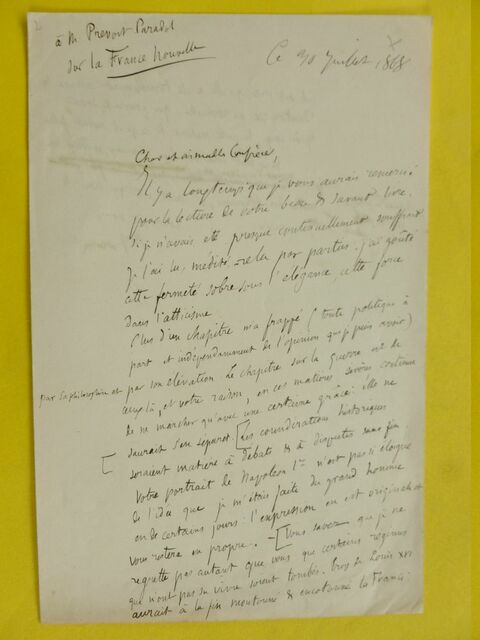 à M. Prevost Paradol
sur la France nouvelle
Ce 30 juillet 1868
Cher et aimable Confrère,
Il y a longtemps que je vous aurais remercié
pour la lecture de votre beau & savant livre
si je n'avais été presque continuellement souffrant
Je l'ai lu, médité – relu par parties. J'ai goûté
cette fermeté sobre sous l'élégance cette force
dans l'atticisme
Plus d'un chapitre m'a frappé (toute politique à
part et indépendamment de l'opinion que je puis avoir)
par sa philosophie et par son élévation Le chapitre sur la guerre est de
ceux là, et votre raison, en ces matières sévères continue
de ne marcher qu'avec une certaine grâce: elle ne
saurait s'en séparer. [Les considérations historiques
seraient matière à débats & à disputes sans fin.
Votre portrait de Napoléon 1er n'est pas si éloigné
de l'idée que je m'étais faite du grand homme
en de certains jours: l'expression en est originale et
vous restera en propre. – [Vous savez que je ne
regrette pas autant que vous que certains régimes
qui n'ont pas su vivre soient tombés. Louis XVI
aurait à la fin & la France: